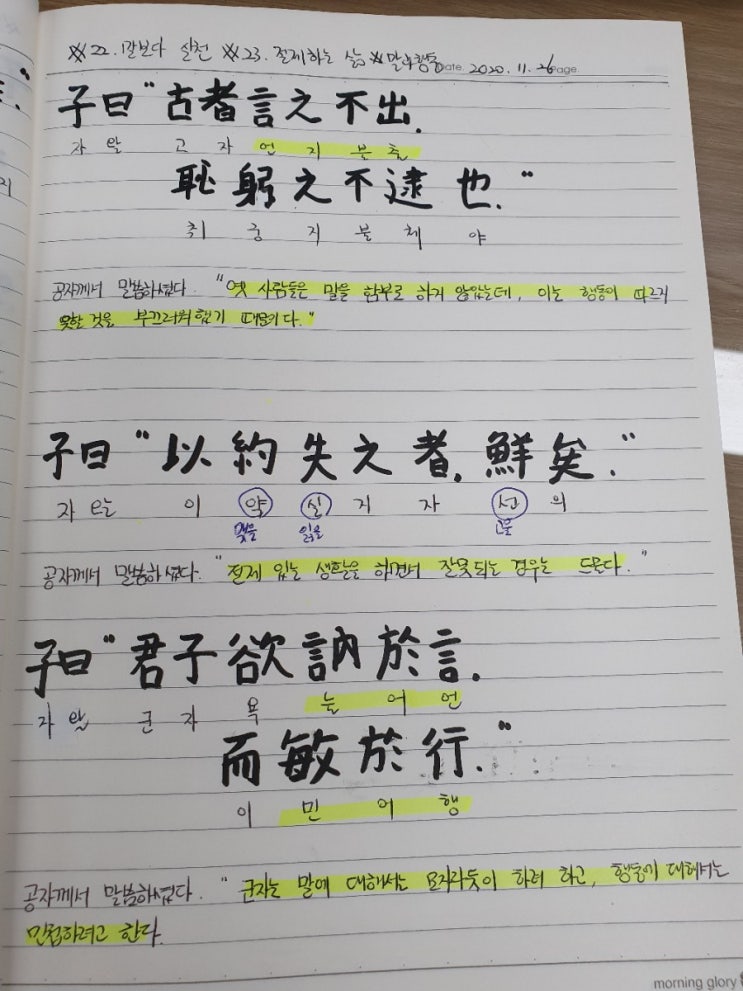 ※22. 말보다 실천 ※23. 절제하는 삶 ※말과 행동 Date. 2020. 11. 26 Page.
子曰 "古者言之不出.
자 왈 고 자 언 지 불 출
恥躬之不逮也."
치 궁 지 불 체 야
공자께서 말씀하셨다. "옛 사람들은 말을 함부로 하지 않았는데, 이는 행동이 따르지
못할 것을 부끄러워했기 때문이다."
子曰 "以約失之者, 鮮矣."
자 왈 이 약 실 지 자 선 의
맺을 잃을 드물
공자께서 말씀하셨다. "절제 있는 생활을 하면서 잘못되는 경우는 드물다."
子曰 "君子欲訥於言.
자 왈 군 자 욕 눌 어 언
而敏於行."
이 민 어 행
공자께서 말씀하셨다. "군자는 말에 대해서는 모자라듯이 하려 하고, 행동에 대해서는
민첩하려고 한다.
morning glory